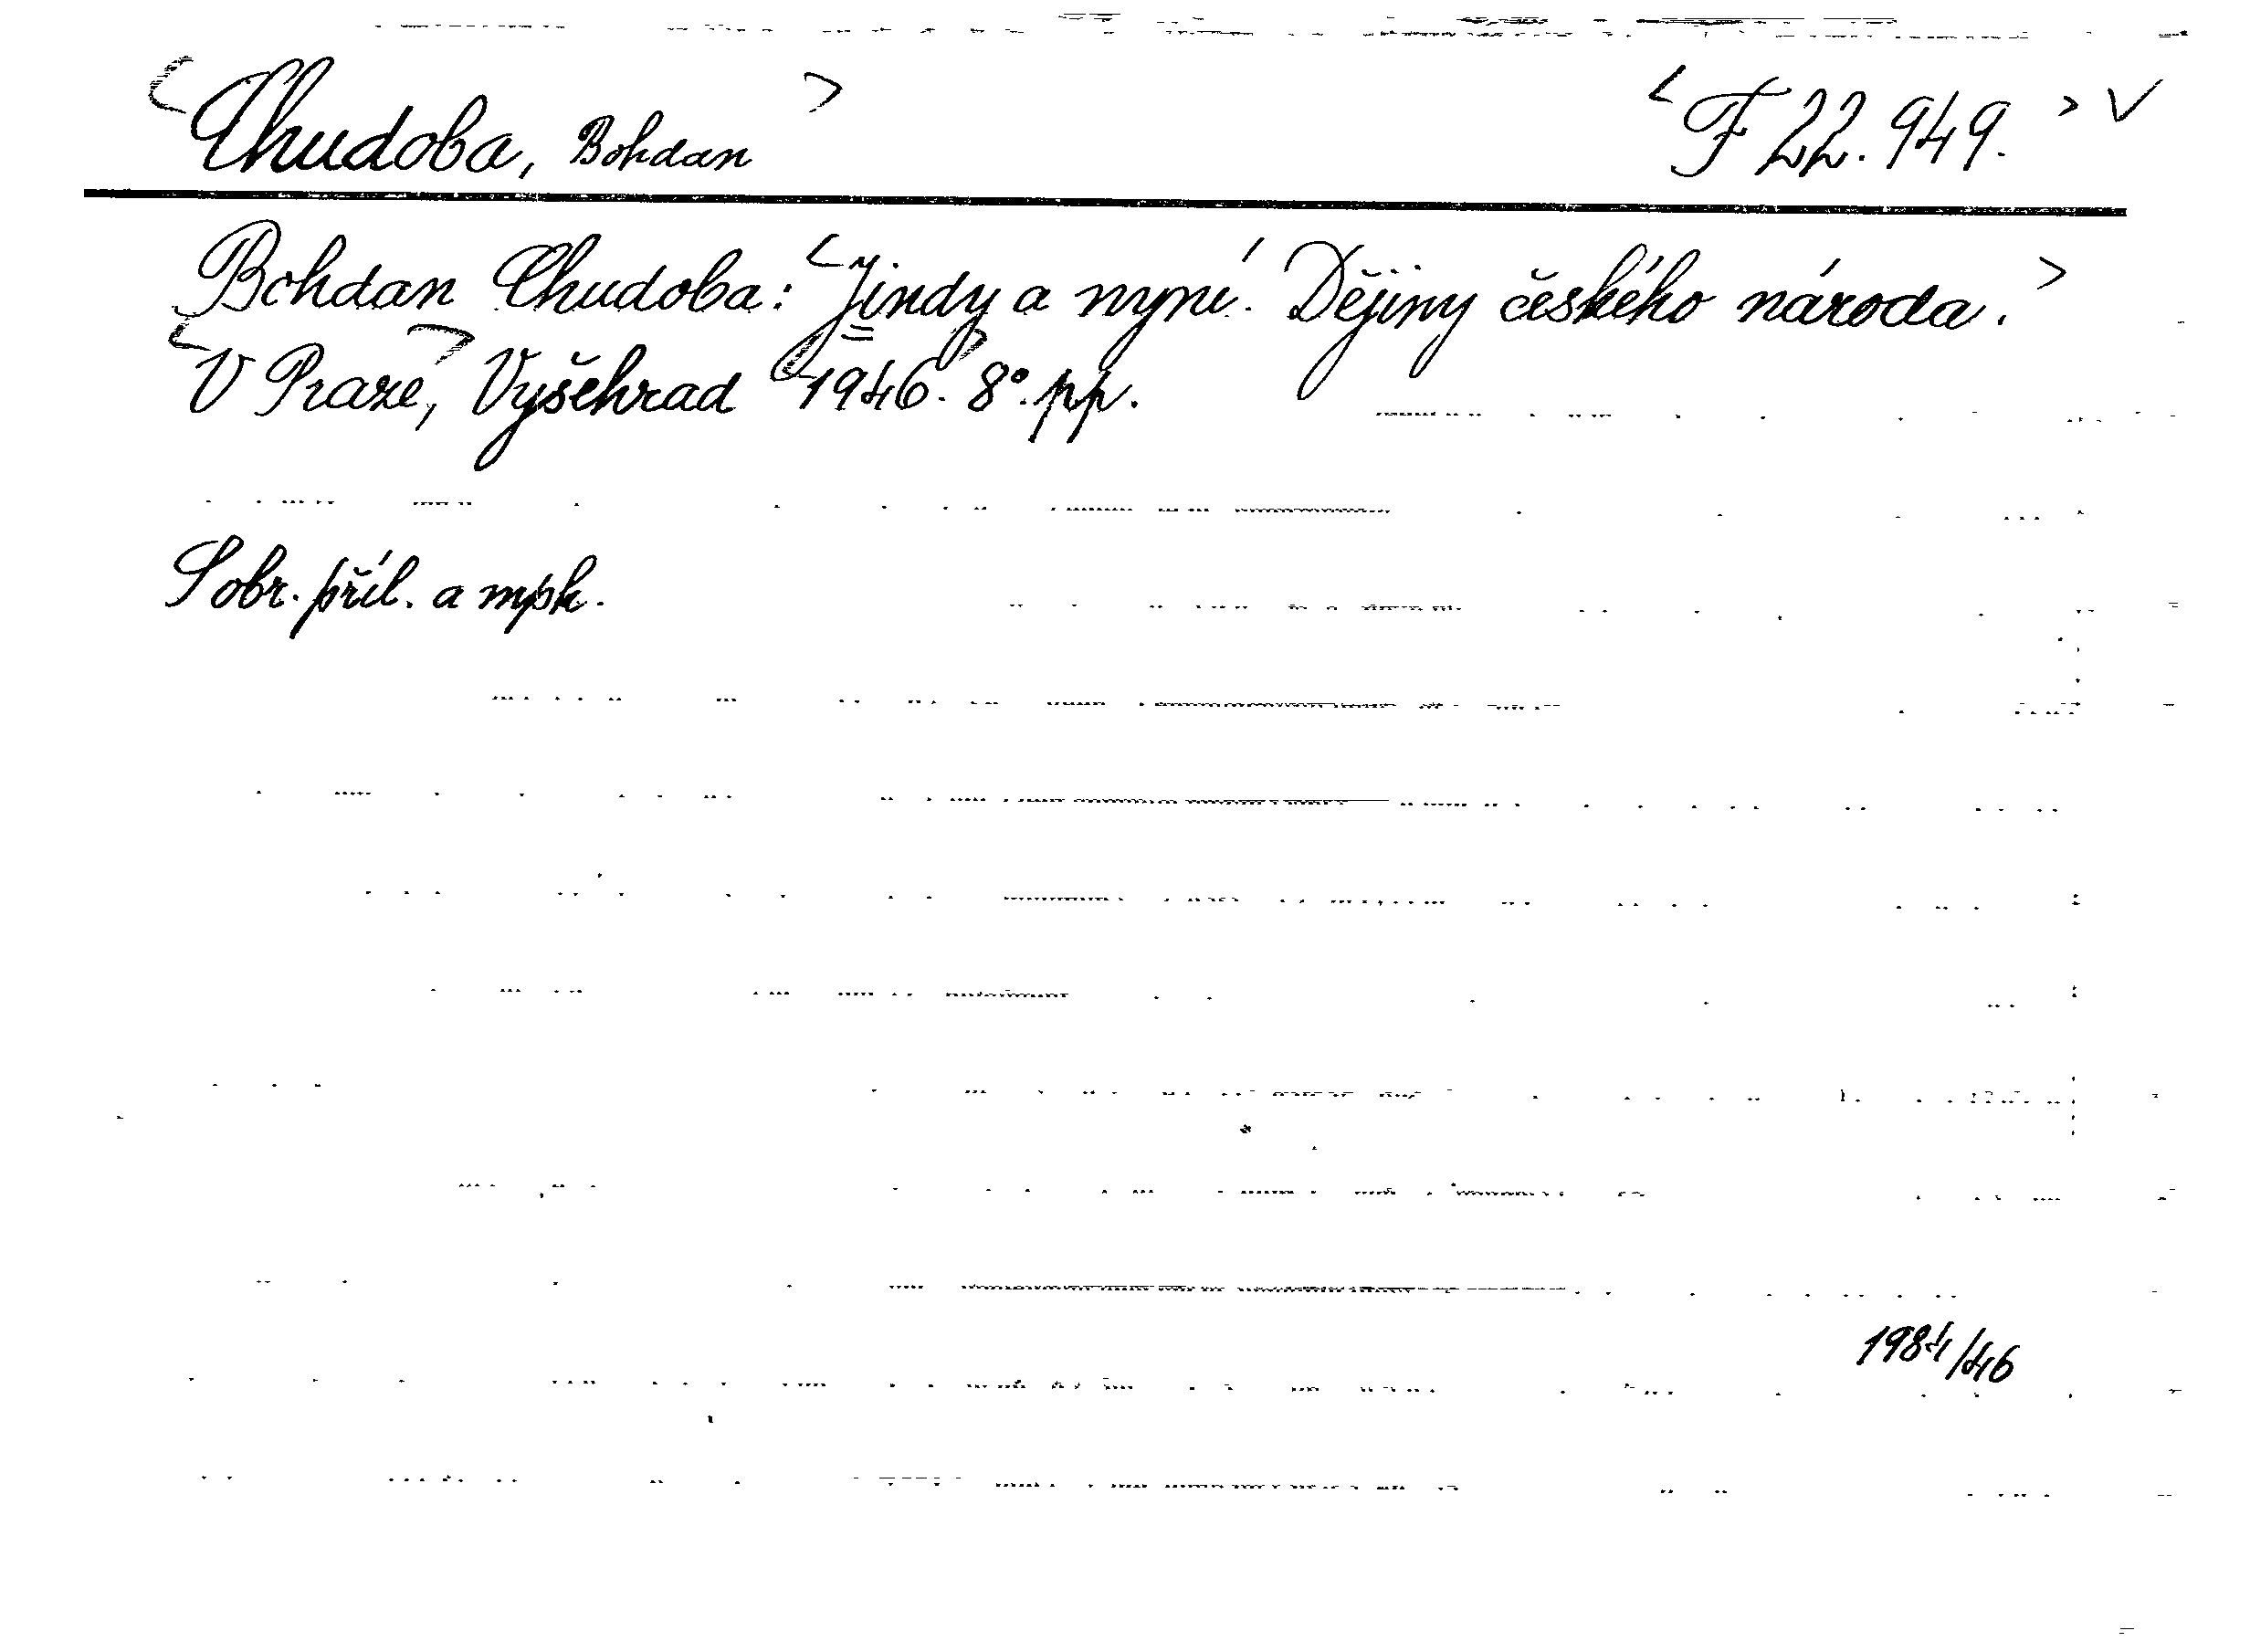 <Chudoba, Bohdan> <F 22.949.> V
Bohdan Chudoba: <Jindy a nyní. Dějiny českého národa.>
<V Praze,> Vyšehrad <1946.> 8°. pp.
S obr. příl. a mpk.
1984/46